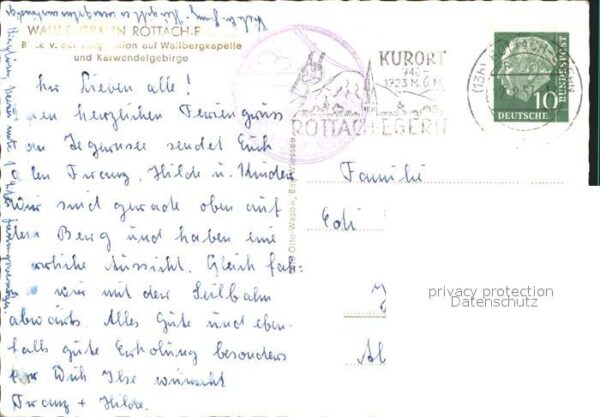 WALLBERGBAHN ROTTACH-E
Blick v. der Bergstation auf Wallbergkapelle
und Karwendelgebirge
Ihr Lieben alle!
nen herzlichen Feriengruss
vom Tegernsee sendet Euch
allen Franz, Hilde u. Kinder
Wir sind gerade oben auf
dem Berg und haben eine
herrliche Aussicht. Gleich fah-
wir mit der Seilbahn
abwärts. Alles Gute und eben-
falls gute Erholung besonders
Dich Ilse wünscht
Franz + Hilde.
Otto-Wasow, Bad Wiessee
KURORT
740-
1723 M.Ü.M.
ROTTACH-EGERN
(13b) ROTTACH-EGERN
DEUTSCHE
BUNDESPOST
10
Familie
Edi
Al
privacy protection
Datenschutz